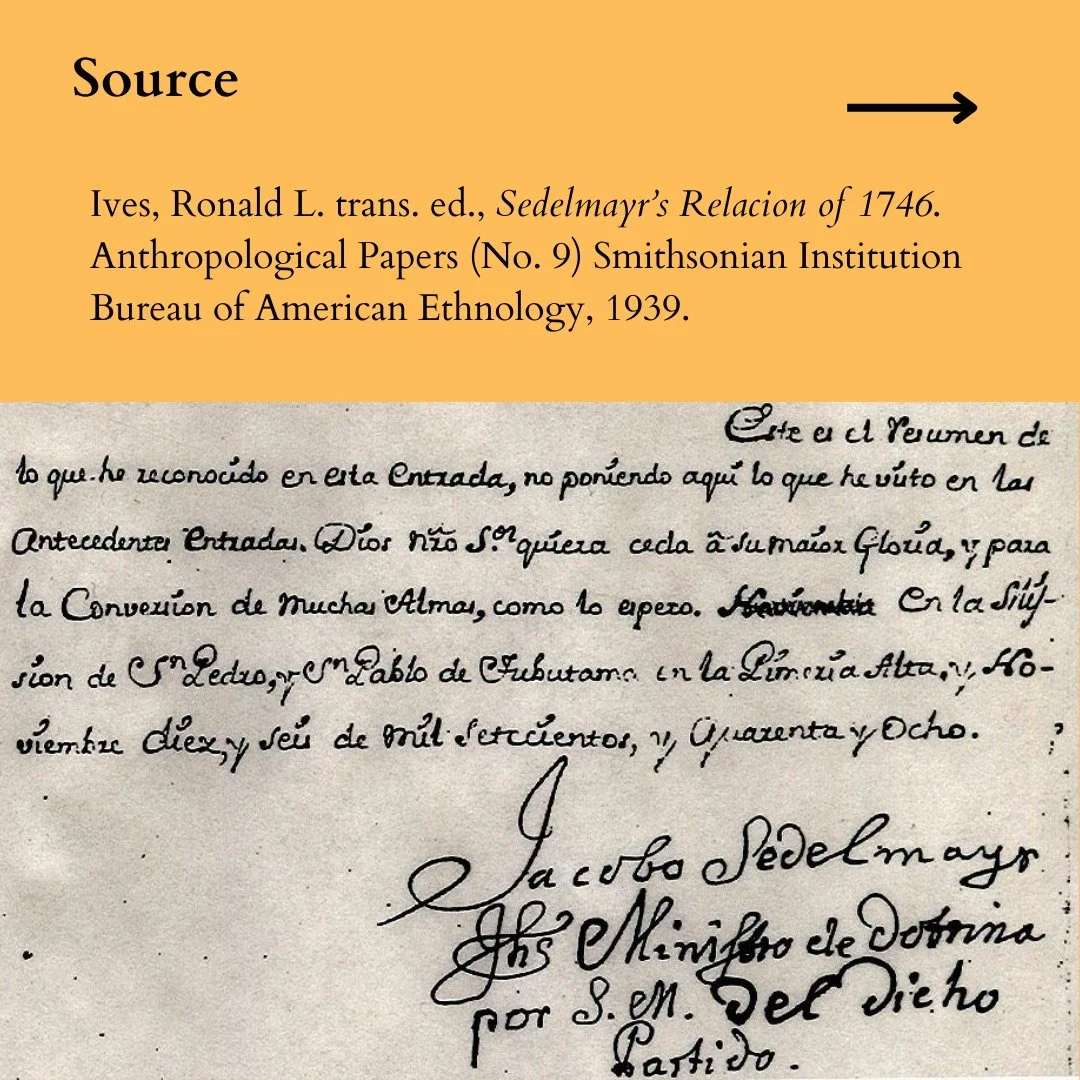 Source
Ives, Ronald L. trans. ed., Sedelmayr's Relacion of 1746.
Anthropological Papers (No. 9) Smithsonian Institution
Bureau of American Ethnology, 1939.
Este es el Resumen de
lo que he reconocido en esta Entrada, no poniendo aquí lo que he visto en las
Antecedentes Entradas. Dios nro S.or quiera ceda â su maior Gloria, y para
la Conversion de muchas Almas, como lo espero. En la Miſ-
sion de Sn Pedro, y Sn Pablo de Tubutama en la Pimeria Alta, y No-
viembre diez, y seis de mil setecientos, y Quarenta y Ocho.
Jacobo Sedelmayr
Jhs Ministro de Dotrina
por S. M. Del Dicho
Partido.